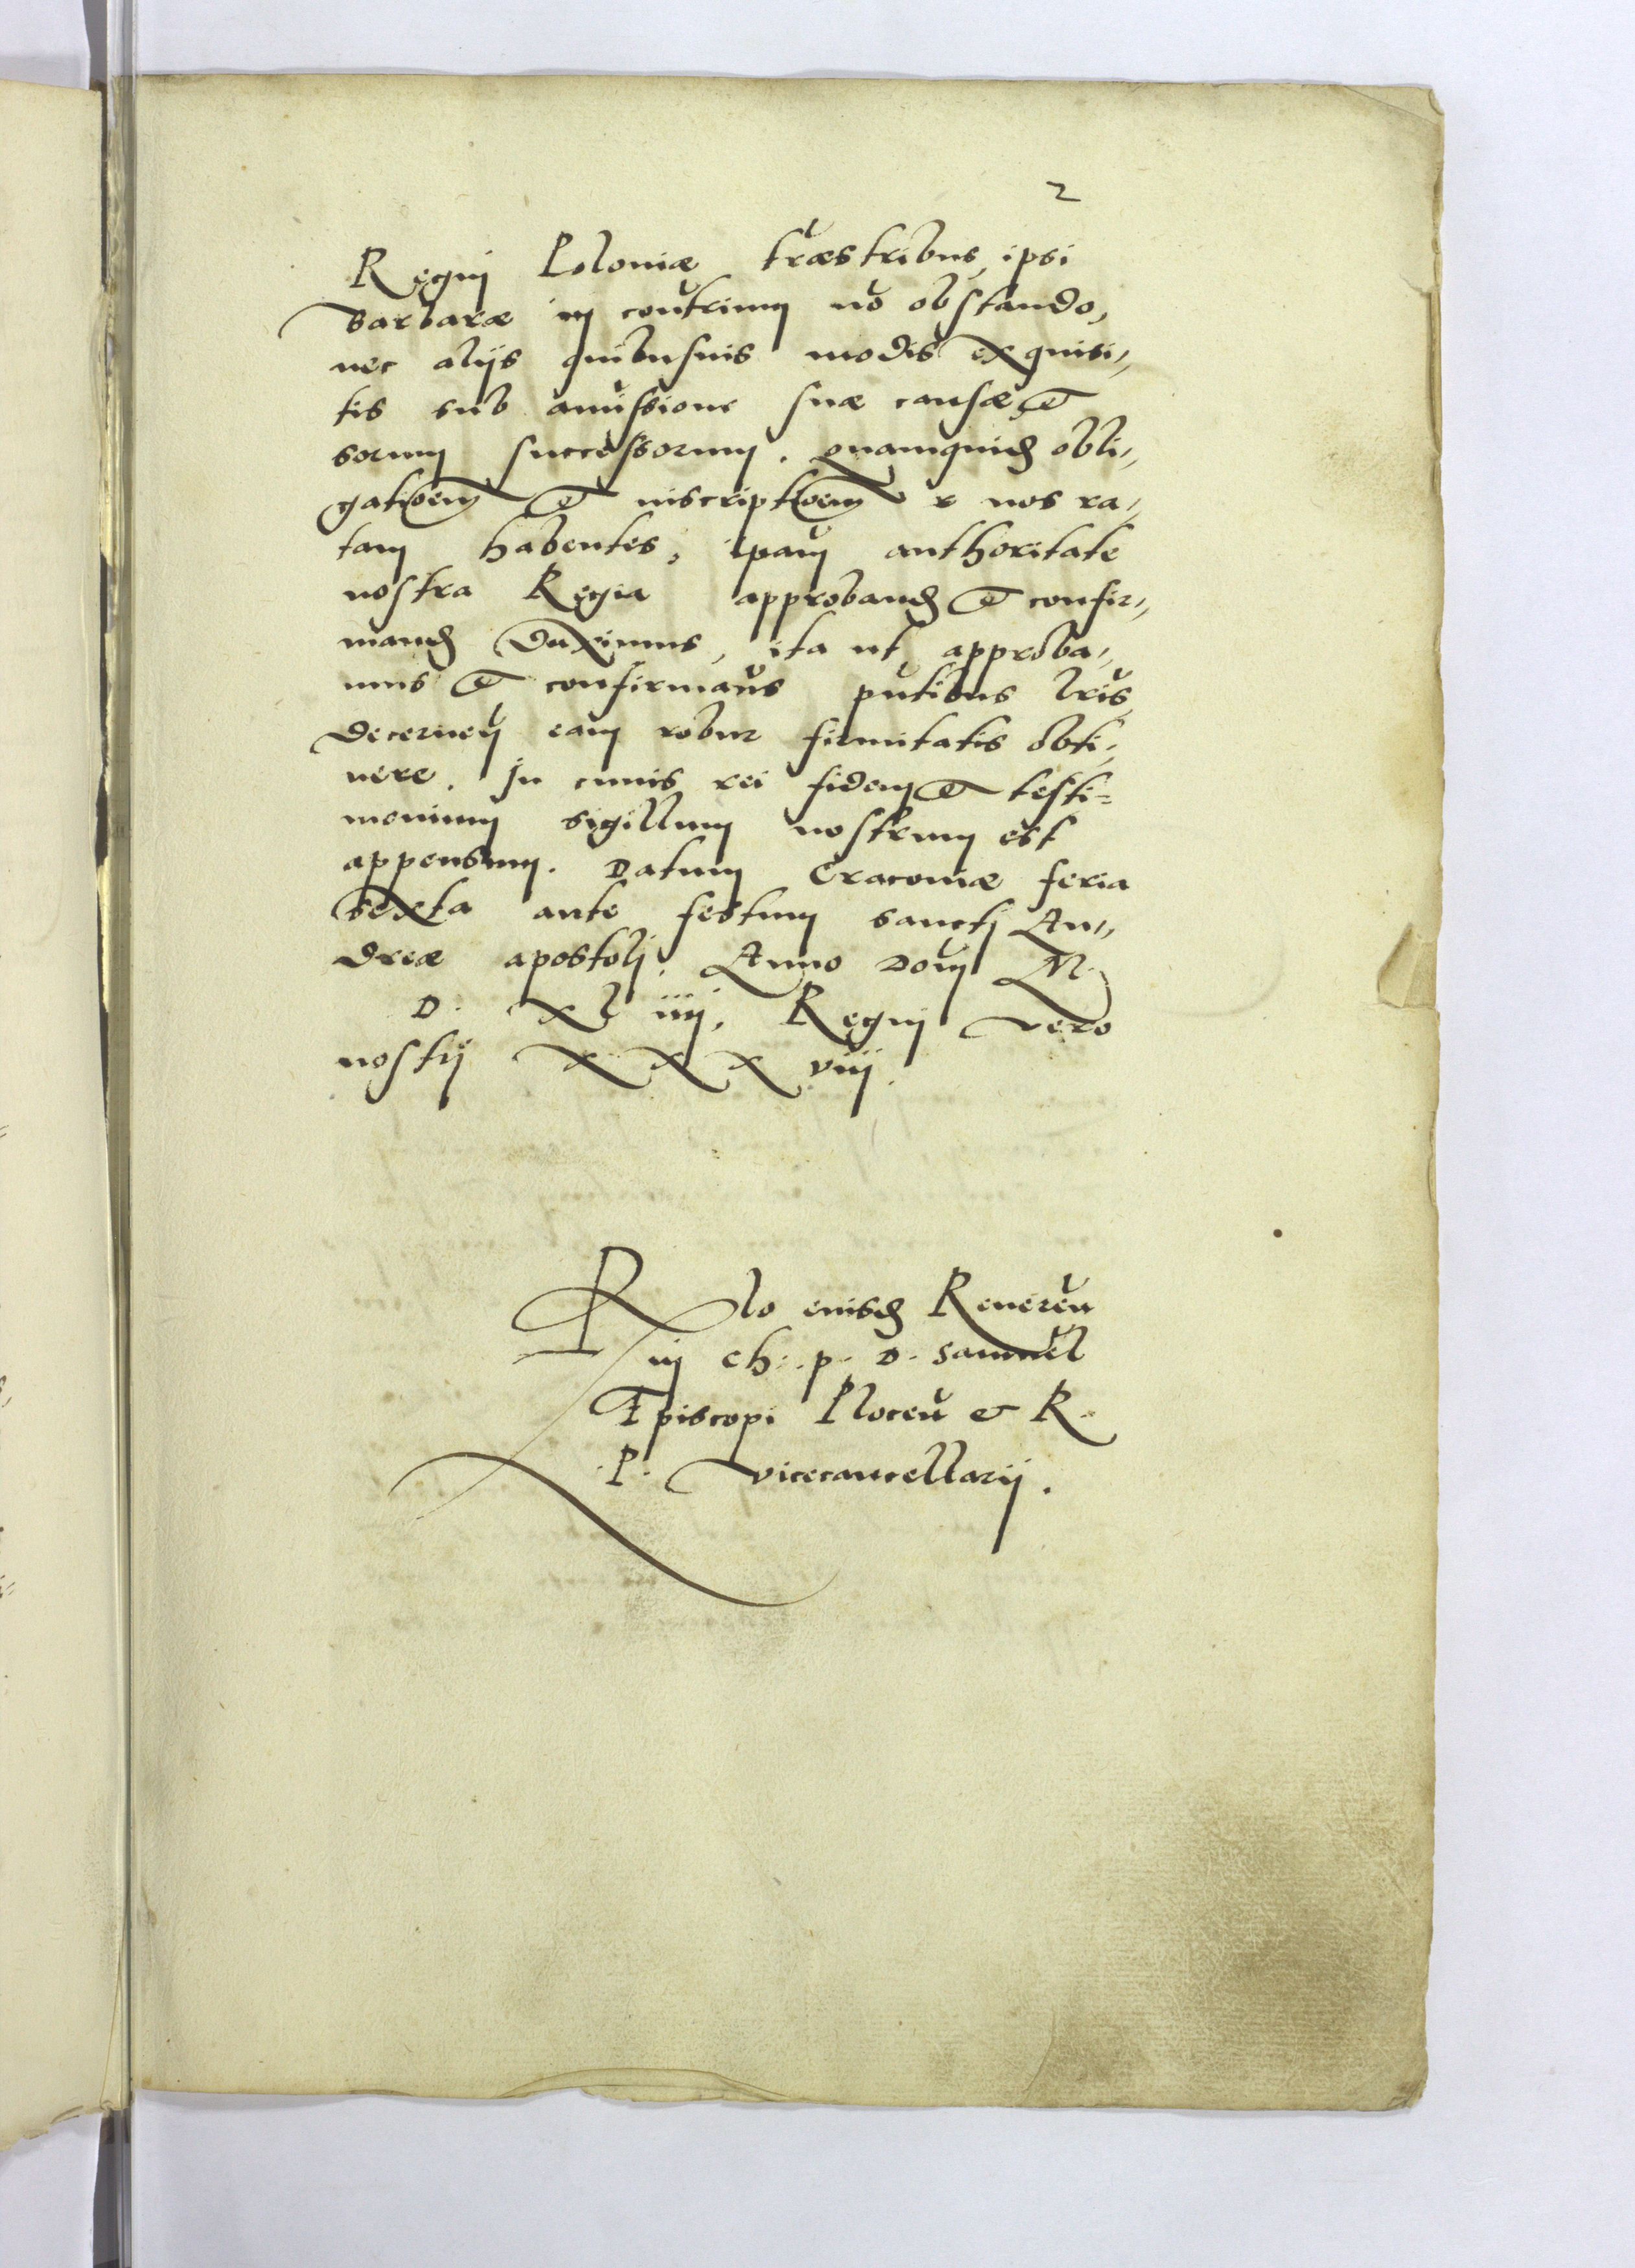 2
Regnj Poloniæ træstribus, ipsi
Barbaræ in contrium nō obstando,
nec alijs quibusuis modis exquisi„
tis sub amissione suæ causæ et
sorum successorum. Quamquid obli„
gatioem et inscriptioem nos ra„
tam habentes, ipam authoritate
nostra Regia approband et confir„
mand Duximus, ita ut approba„
mus et confirmaus pntibus lris
Decernen eam robur firmitatis obti„
nere. In cuius rei fidem et testi=
monium sigillum nostrum est
appensum. Datum Cracouiæ feria
sexta ante festum sanctj An„
dreæ apostolj. Anno Domj M.
D. XL iiij, Regnj vero
nostrj XXX viij.
Rlo eiusd Reueren
in Ch: p. D. Samuel
Episcopi Plocen & R.
P. vicecancellarij.